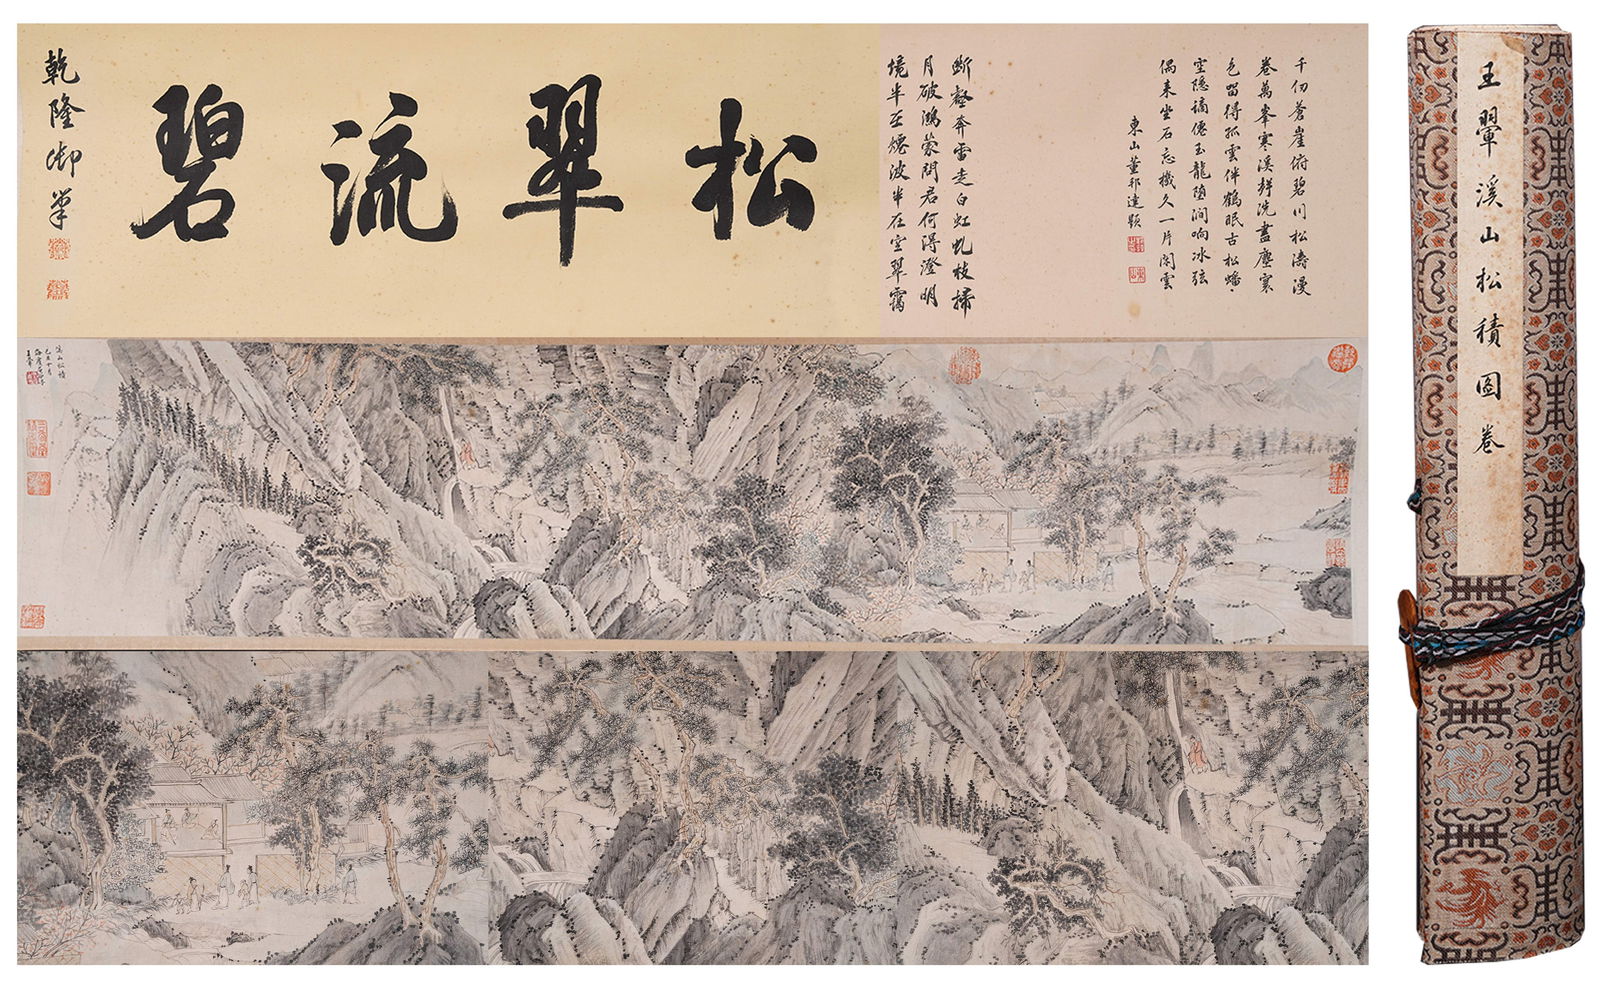 松翠流碧
乾隆御筆
千仞蒼崖俯碧川松濤漫
卷萬峯寒溪聲洗盡塵寰
色留得孤雲伴鶴眠古松蟠
空隱謫僊玉龍墮澗响冰弦
偶来坐石忘機久一片閑雲
東山董邦達題
斷壑奔雷走白虹虬枝掃
月破鴻蒙問君何淂澄明
境半至煙波半在空翠靄
溪山松積
王翬
王翬溪山松積圖卷